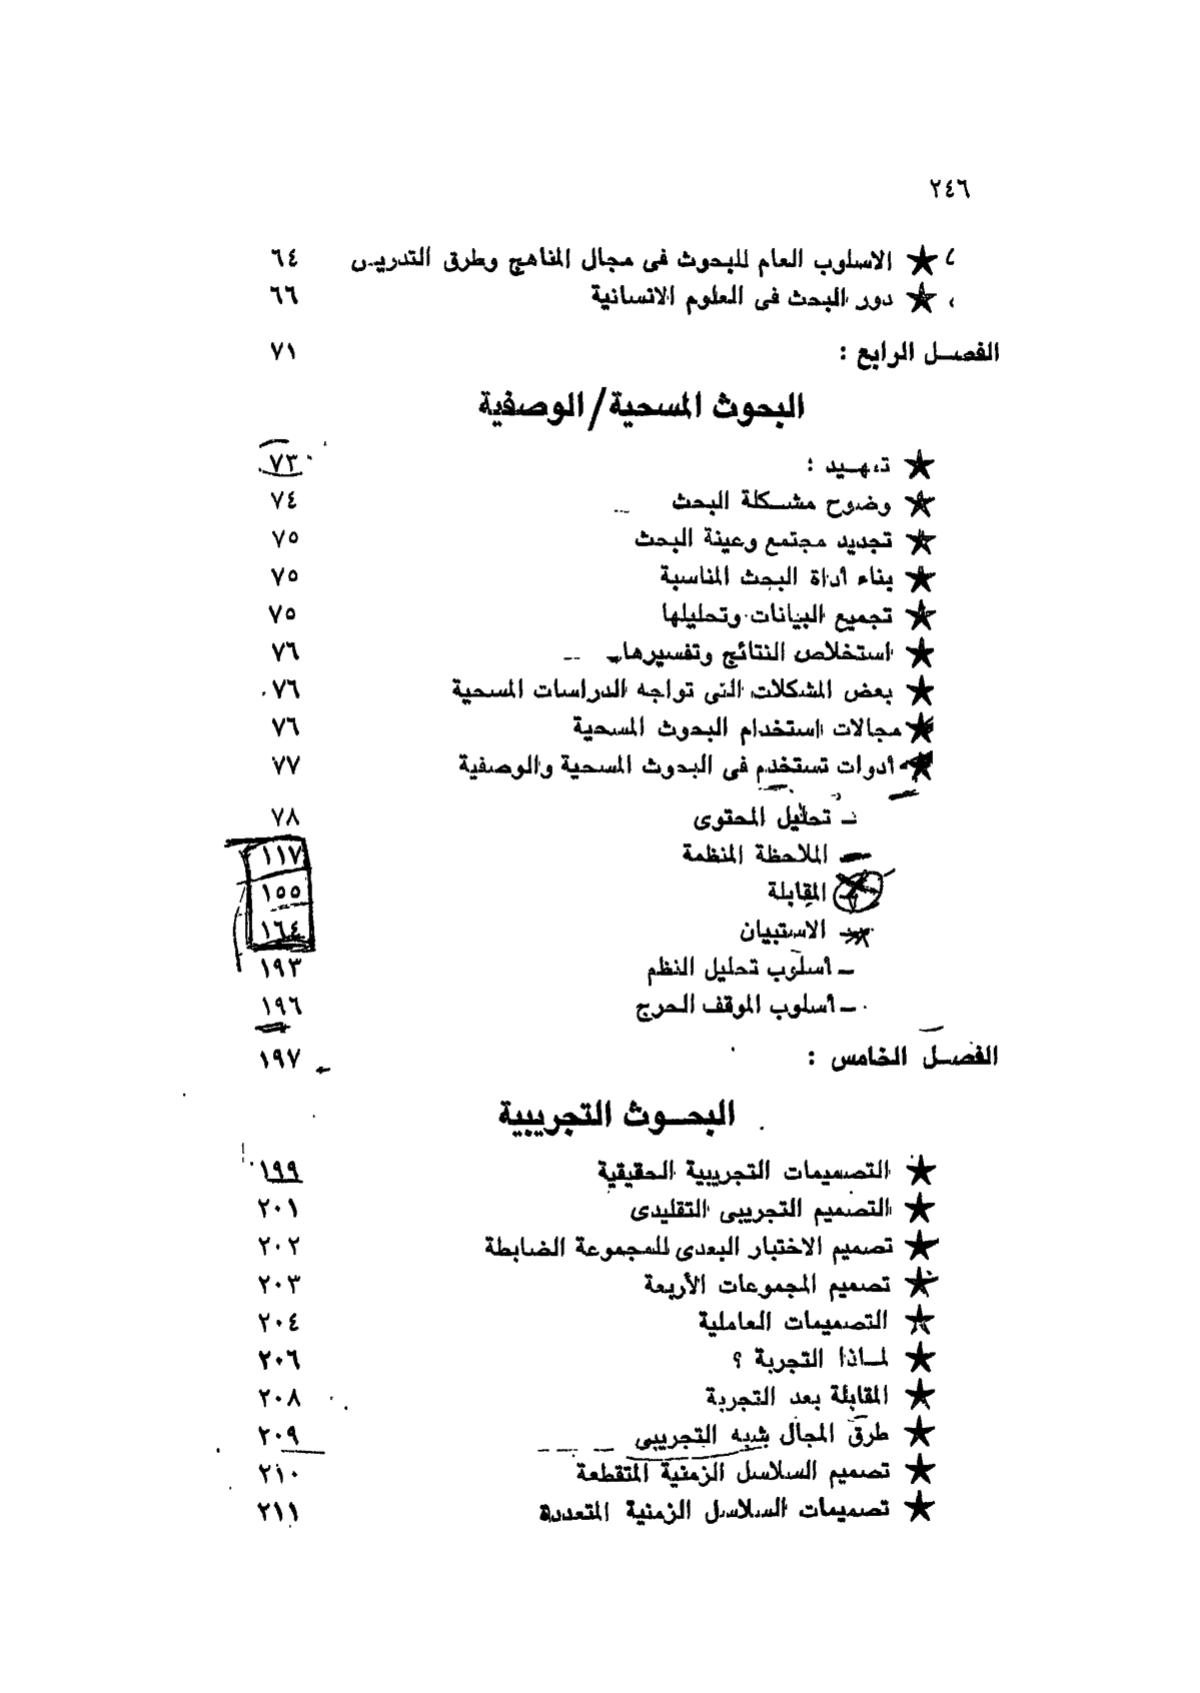 ٢٤٦
★ الاسلوب العام للبحوث فى مجال المناهج وطرق التدريس ٦٤
★ دور البحث فى العلوم الانسانية ٦٦
الفصل الرابع : ٧١
البحوث المسحية/الوصفية
★ تمهيد : ٧٣
★ وضوح مشكلة البحث ٧٤
★ تجديد مجتمع وعينة البحث ٧٥
★ بناء أداة البحث المناسبة ٧٥
★ تجميع البيانات وتحليلها ٧٥
★ استخلاص النتائج وتفسيرها ٧٦
★ بعض المشكلات التى تواجه الدراسات المسحية ٧٦
★ مجالات استخدام البحوث المسحية ٧٦
★ أدوات تستخدم فى البحوث المسحية والوصفية ٧٧
ـ تحليل المحتوى ٧٨
ـ الملاحظة المنظمة ١١٧
ـ المقابلة ١٥٥
ـ الاستبيان ١٦٤
ـ أسلوب تحليل النظم ١٩٣
ـ أسلوب الموقف الحرج ١٩٦
الفصل الخامس : ١٩٧
البحوث التجريبية
★ التصميمات التجريبية الحقيقية ١٩٩
★ التصميم التجريبى التقليدى ٢٠١
★ تصميم الاختبار البعدى للمجموعة الضابطة ٢٠٢
★ تصميم المجموعات الأربعة ٢٠٣
★ التصميمات العاملية ٢٠٤
★ لماذا التجربة ؟ ٢٠٦
★ المقابلة بعد التجربة ٢٠٨
★ طرق المجال شبه التجريبى ٢٠٩
★ تصميم السلاسل الزمنية المتقطعة ٢١٠
★ تصميمات السلاسل الزمنية المتعددة ٢١١